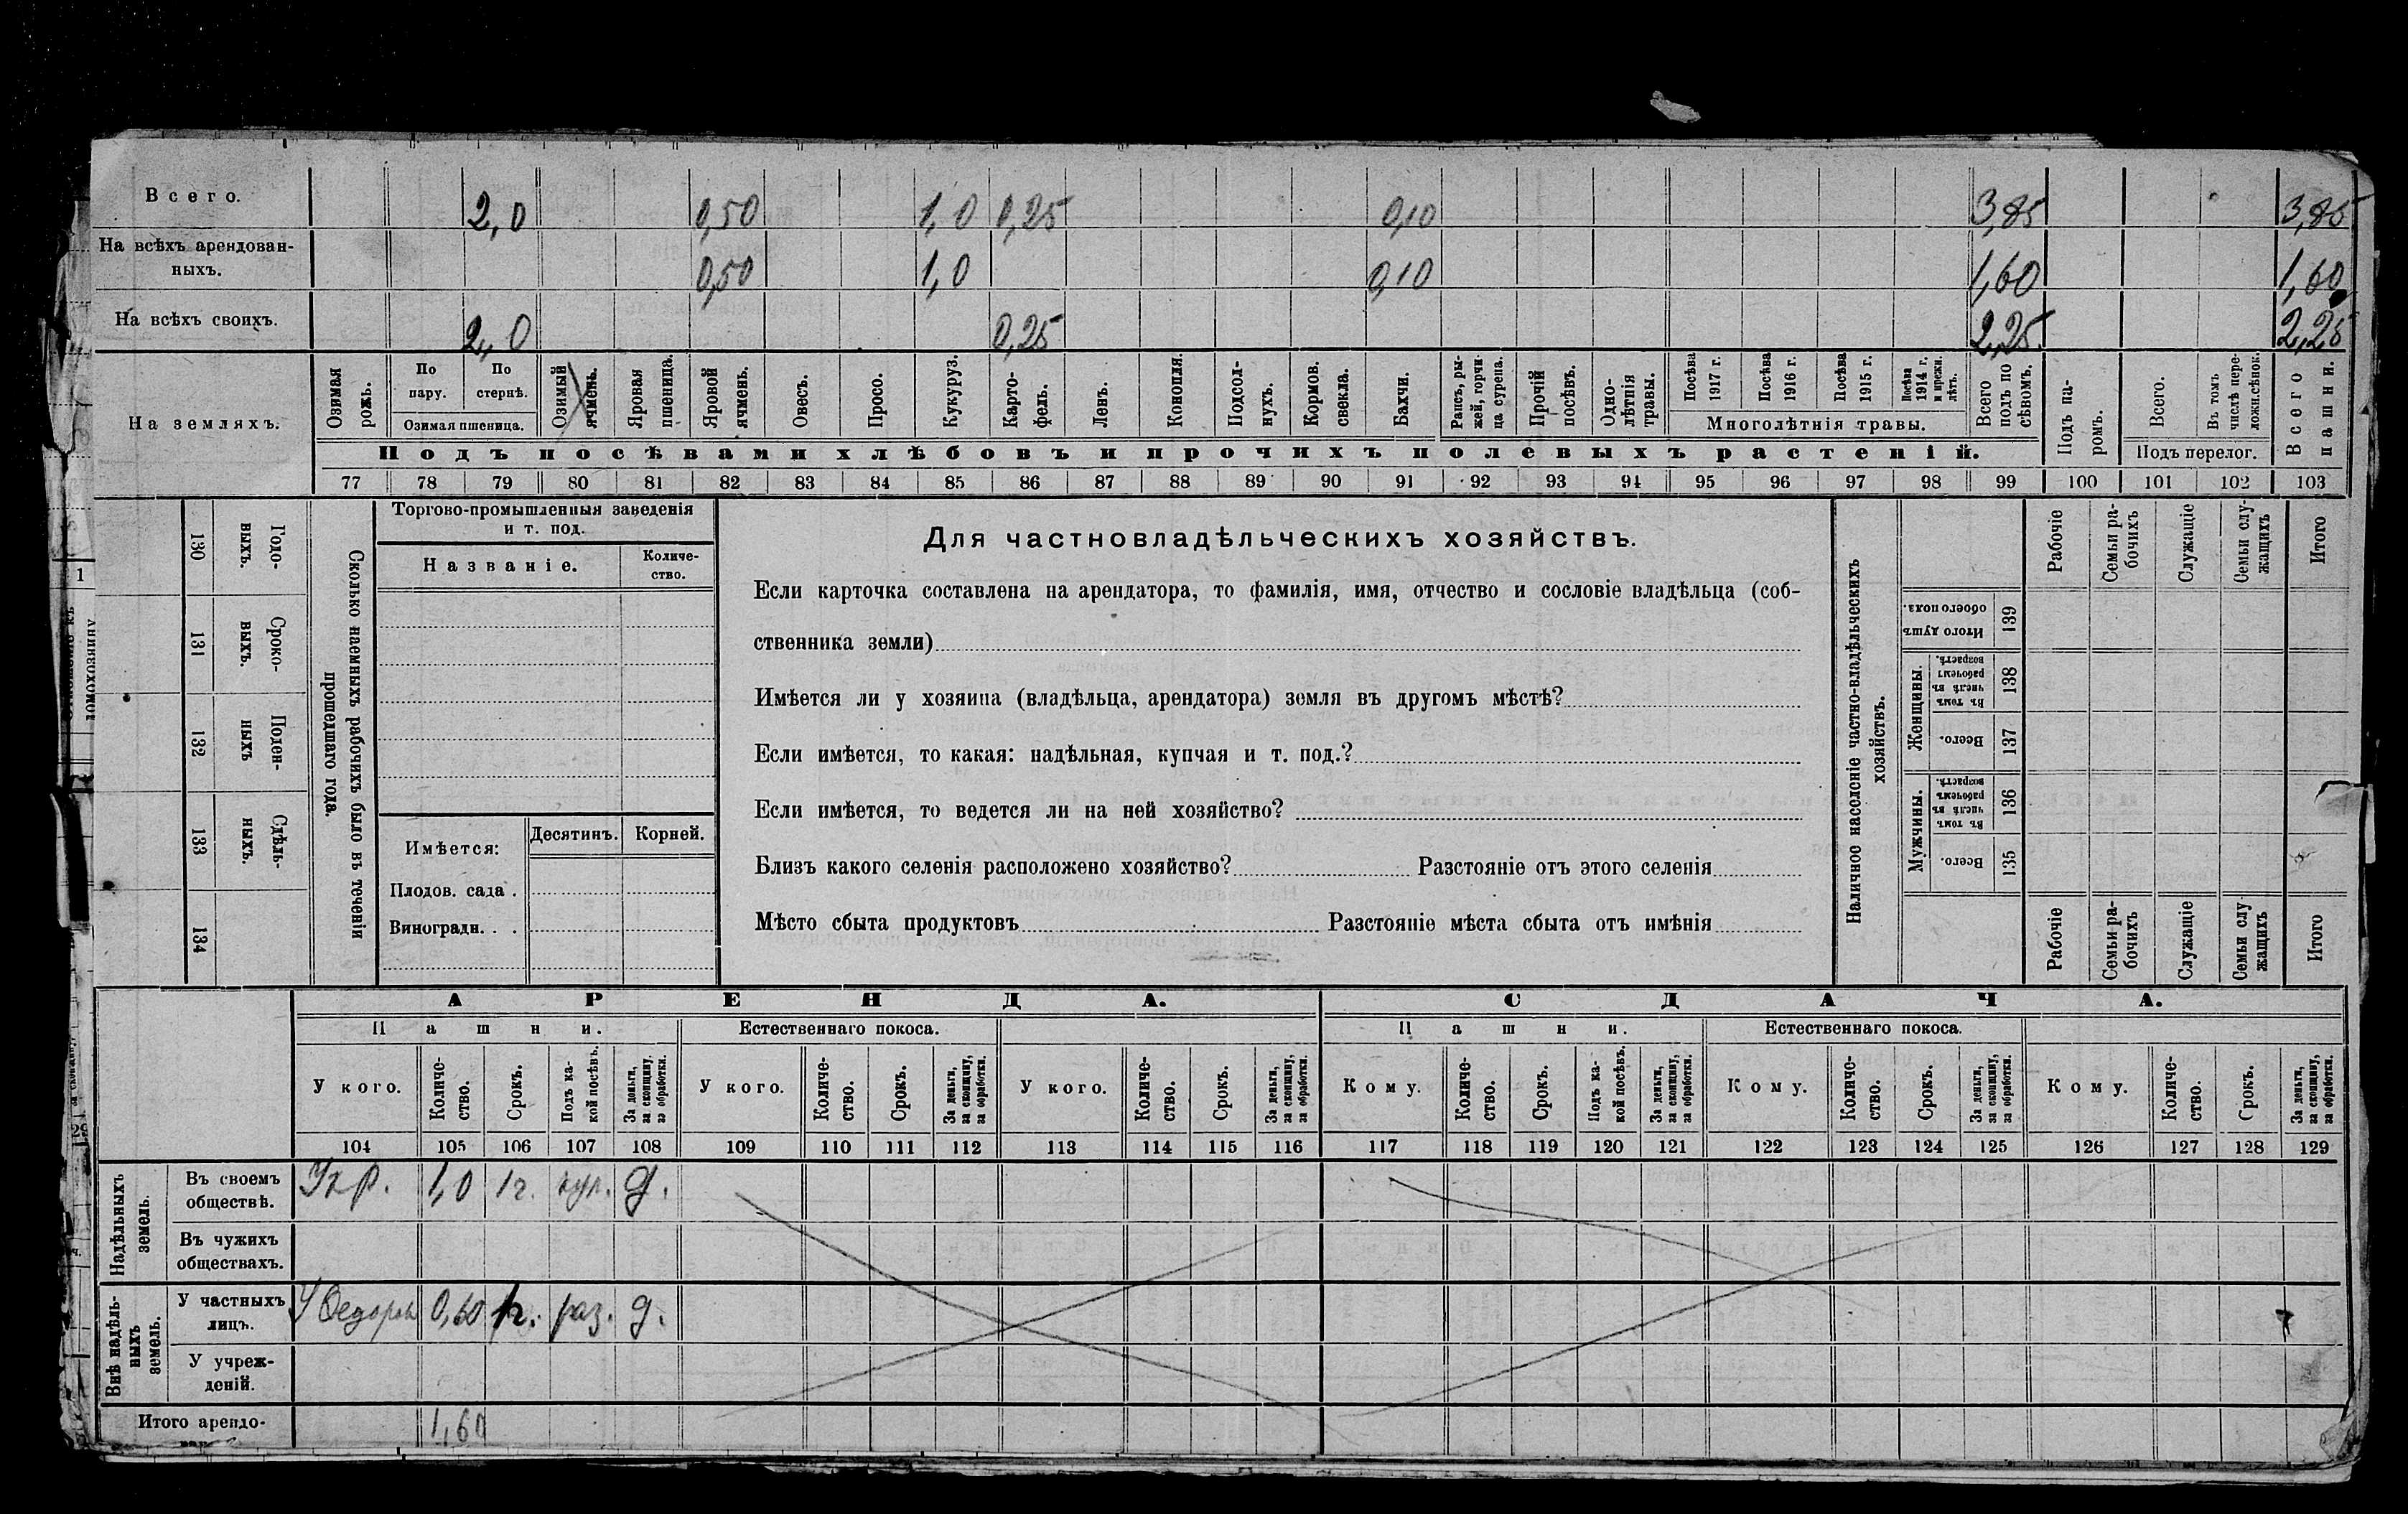 Всего. 2,0 0,50 1,0 0,25 0,10 3,85 3,85
На всѣхъ арендован-
ныхъ. 0,50 1,0 0,10 1,60 1,60
На всѣхъ своихъ. 2,0 0,25 2,25 2,25
На земляхъ.
Озимая рожь.
По пару.
По стернѣ.
Озимая пшеница.
Озимый ячмень.
Яровая пшеница.
Яровой ячмень.
Овесъ.
Просо.
Кукуруз.
Карто-
фель.
Ленъ.
Конопля.
Подсол-
нухъ.
Кормов. свекла.
Бахчи.
Рапсъ, ры-
жей, горчи
ца сурепа.
Прочій посѣвъ.
Одно-
лѣтнія
травы.
Посѣва 1917 г.
Посѣва 1916 г.
Посѣва 1915 г.
Посѣва
1914 г.
и прежн.
лѣтъ.
Многолѣтнія травы.
Всего
подъ по
сѣвомъ.
Подъ па-
ромъ.
Всего.
Въ томъ
числѣ пере-
ложн.сѣнок.
Подъ перелог.
Всего
пашни.
Подъ посѣвами хлѣбовъ и прочихъ полевыхъ растеній.
77 78 79 80 81 82 83 84 85 86 87 88 89 90 91 92 93 94 95 96 97 98 99 100 101 102 103
130 Годо-
выхъ.
131 Сроко-
выхъ.
132 Поден-
ныхъ
133 Сдѣль-
ныхъ.
134
Сколько наемныхъ рабочихъ было въ теченіи
прошедшаго года.
Торгово-промышленныя заведенія
и т. под.
Названіе.
Количе-
ство.
Имѣется:
Десятинъ. Корней.
Плодов. сада .
Виноградн. . .
Для частновладѣльческихъ хозяйствъ.
Если карточка составлена на арендатора, то фамилія, имя, отчество и сословіе владѣльца (соб-
ственника земли)
Имѣется ли у хозяина (владѣльца, арендатора) земля въ другомъ мѣстѣ?
Если имѣется, то какая: надѣльная, купчая и т. под.?
Если имѣется, то ведется ли на ней хозяйство?
Близъ какого селенія расположено хозяйство? Разстояніе отъ этого селенія
Мѣсто сбыта продуктовъ Разстояніе мѣста сбыта отъ имѣнія
Наличное населеніе частно-владѣльческихъ
хозяйствъ.
Рабочіе
Семьи ра-
бочихъ
Служащіе
Семьи слу-
жащихъ
Итого
Итого душъ
обоего пола.
139
Женщины.
Въ томъ
числѣ въ
рабочемъ
возрастѣ.
138
Всего.
137
Мужчины.
Въ томъ
числѣ въ
рабочемъ
возрастѣ.
136
Всего.
135
Рабочіе
Семьи ра-
бочихъ
Служащіе
Семьи слу
жащихъ
Итого
АРЕНДА. СДАЧА.
Пашни. Естественнаго покоса. Пашни. Естественнаго покоса.
У кого.
Количе-
ство.
Срокъ.
Подъ ка-
кой посѣвъ.
За деньги,
за скопщину,
за обработки.
У кого.
Количе-
ство.
Срокъ.
За деньги,
за скопщину,
за обработки.
У кого.
Количе-
ство.
Срокъ.
За деньги,
за скопщину,
за обработки.
Кому.
Количе-
ство.
Срокъ.
Подъ ка-
кой посѣвъ.
За деньги,
за скопщину,
за обработки.
Кому.
Количе-
ство.
Срокъ.
За деньги,
за скопщину,
за обработки.
Кому.
Количе-
ство.
Срокъ.
За деньги,
за скопщину,
за обработки.
104 105 106 107 108 109 110 111 112 113 114 115 116 117 118 119 120 121 122 123 124 125 126 127 128 129
Надѣльныхъ
земель.
Въ своемъ
обществѣ. 1,0 1 г. д.
Въ чужихъ
обществахъ.
Внѣ надѣль-
ныхъ
земель.
У частныхъ
лицъ. 0,60 1 г. раз. д.
У учреж-
деній.
Итого арендо- 1,60